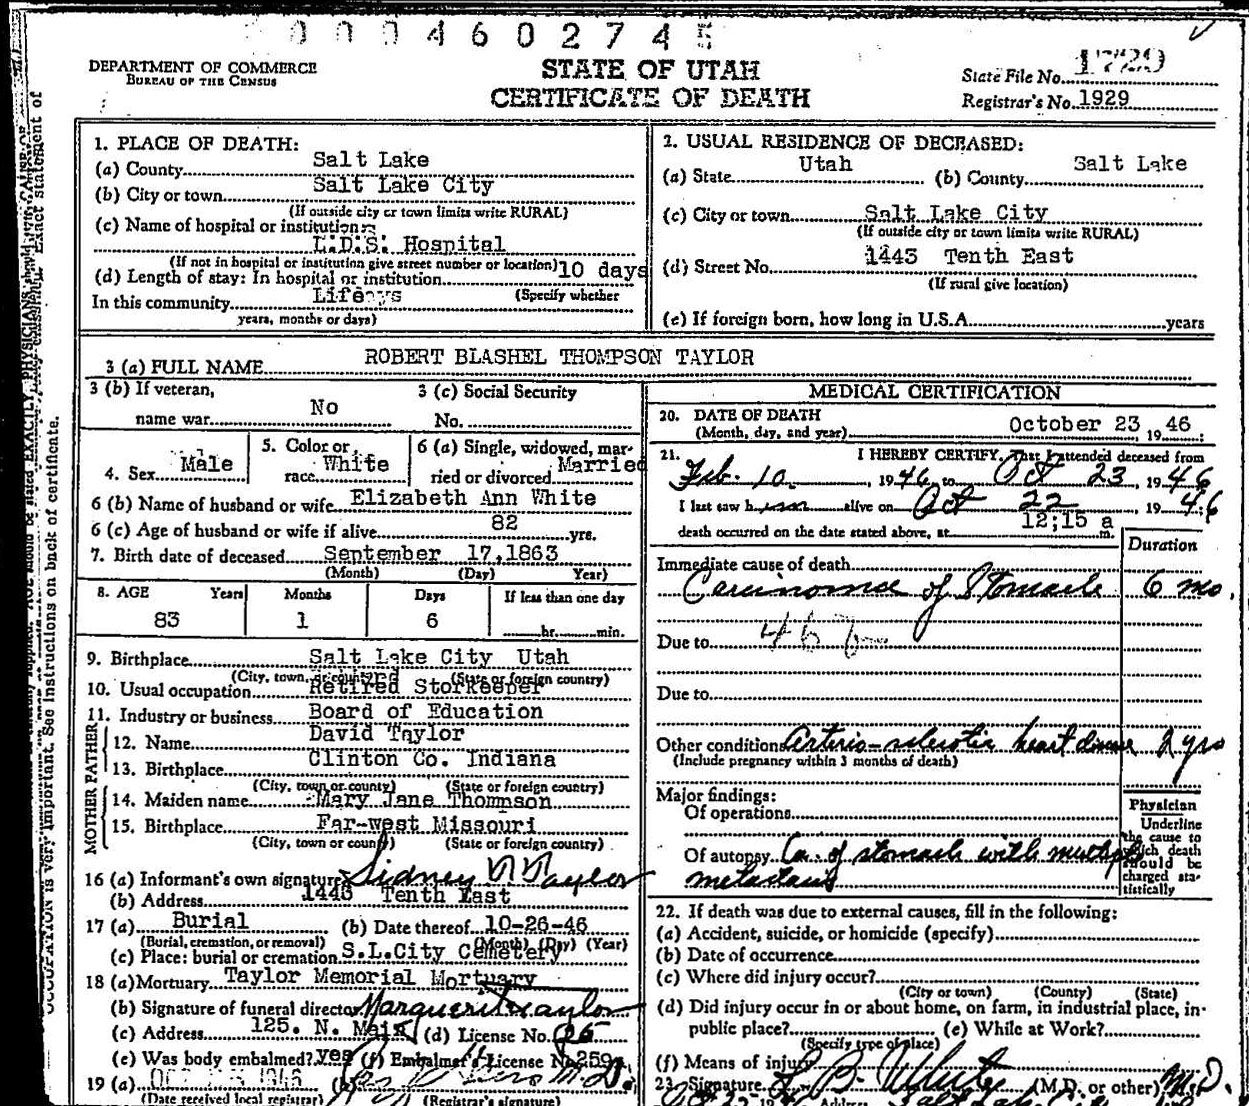 0 0 0 4 6 0 2 7 4 5
DEPARTMENT OF COMMERCE
BUREAU OF THE CENSUS
STATE OF UTAH
CERTIFICATE OF DEATH
State File No. 1729
Registrar's No. 1929
1. PLACE OF DEATH:
(a) County Salt Lake
(b) City or town Salt Lake City
(If outside city or town limits write RURAL)
(c) Name of hospital or institution:
L.D.S. Hospital
(If not in hospital or institution give street number or location)
(d) Length of stay: In hospital or institution 10 days
In this community Life (Specify whether
years, months or days)
2. USUAL RESIDENCE OF DECEASED:
(a) State Utah (b) County Salt Lake
(c) City or town Salt Lake City
(If outside city or town limits write RURAL)
(d) Street No. 1443 Tenth East
(If rural give location)
(e) If foreign born, how long in U.S.A. years
3 (a) FULL NAME ROBERT BLASHEL THOMPSON TAYLOR
3 (b) If veteran,
name war No
3 (c) Social Security
No.
4. Sex Male
5. Color or
race White
6 (a) Single, widowed, mar-
ried or divorced Married
6 (b) Name of husband or wife Elizabeth Ann White
6 (c) Age of husband or wife if alive 82 yrs.
7. Birth date of deceased September 17, 1863
(Month) (Day) Year)
8. AGE Years Months Days If less than one day
83 1 6 hr. min.
9. Birthplace Salt Lake City Utah
(City, town, or county) (State or foreign country)
10. Usual occupation Retired Storkeeper
11. Industry or business Board of Education
FATHER
12. Name David Taylor
13. Birthplace Clinton Co. Indiana
(City, town or county) (State or foreign country)
MOTHER
14. Maiden name Mary Jane Thompson
15. Birthplace Far-west Missouri
(City, town or county) (State or foreign country)
16 (a) Informant's own signature Sidney Taylor
(b) Address 1443 Tenth East
17 (a) Burial (b) Date thereof 10-26-46
(Burial, cremation, or removal) (Month) (Day) (Year)
(c) Place: burial or cremation S.L.City Cemetery
18 (a) Mortuary Taylor Memorial Mortuary
(b) Signature of funeral director Marguerite Taylor
(c) Address 125. N. Main (d) License No.
(e) Was body embalmed? yes (f) Embalmer's License No. 259
19 (a) 1946 (b) M.D.
(Date received local registrar) (Registrar's signature)
MEDICAL CERTIFICATION
20. DATE OF DEATH
(Month, day, and year) October 23, 19 46
21. I HEREBY CERTIFY, That I attended deceased from
Feb. 10, 1946, to Oct 23, 1946
I last saw him alive on Oct 22 19 46
death occurred on the date stated above, at 12;15 a m.
Duration
Immediate cause of death
Carcinoma of Stomach 6 mo.
Due to 46
Due to
Other conditions Arterio-sclerotic heart disease 2 yrs
(Include pregnancy within 3 months of death)
Major findings:
Of operations
Of autopsy Ca. of stomach with multiple
metastasis
Physician
Underline
the cause to
which death
should be
charged sta-
tistically
22. If death was due to external causes, fill in the following:
(a) Accident, suicide, or homicide (specify)
(b) Date of occurrence
(c) Where did injury occur?
(City or town) (County) (State)
(d) Did injury occur in or about home, on farm, in industrial place, in
public place? (e) While at Work?
(Specify type of place)
(f) Means of injury
23. Signature White (M.D. or other) M.D.